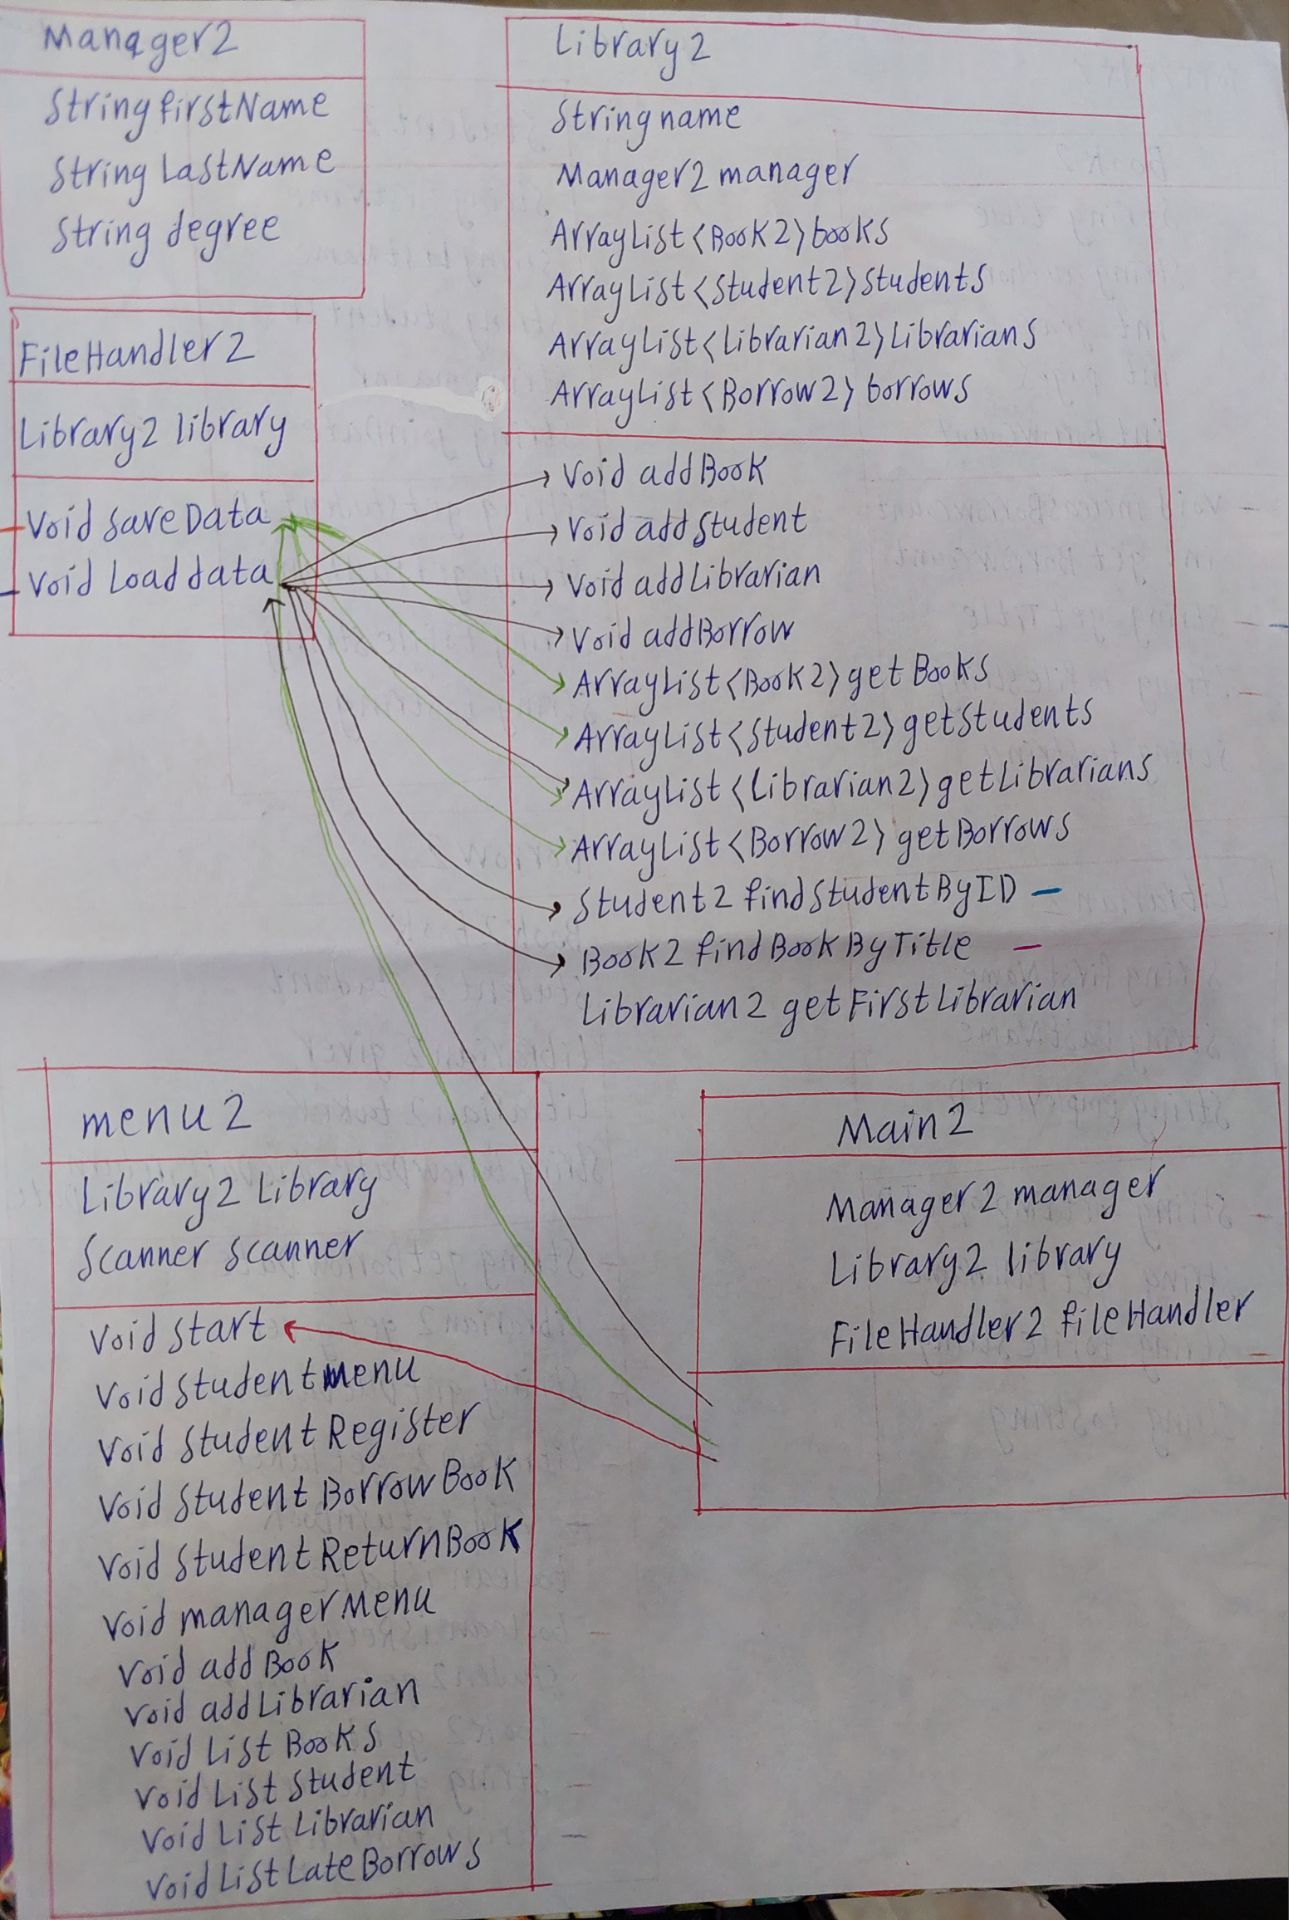 Manager2
String firstName
String LastName
String degree
FileHandler2
Library2 library
Void saveData
Void Loaddata
Library2
String name
Manager2 manager
ArrayList<Book2>books
ArrayList<Student2>Students
ArrayList<Librarian2>Librarians
ArrayList<Borrow2>borrows
Void addBook
Void addStudent
Void addLibrarian
Void addBorrow
ArrayList<Book2>getBooks
ArrayList<Student2>getStudents
ArrayList<Librarian2>getLibrarians
ArrayList<Borrow2>getBorrows
Student2 findStudentByID
Book2 findBookByTitle
Librarian2 getFirstLibrarian
menu2
Library2 Library
Scanner scanner
Void start
Void Studentmenu
Void StudentRegister
Void StudentBorrowBook
Void StudentReturnBook
Void managerMenu
Void addBook
Void addLibrarian
Void ListBooks
Void ListStudent
Void ListLibrarian
Void ListLateBorrows
Main2
Manager2 manager
Library2 library
FileHandler2 fileHandler